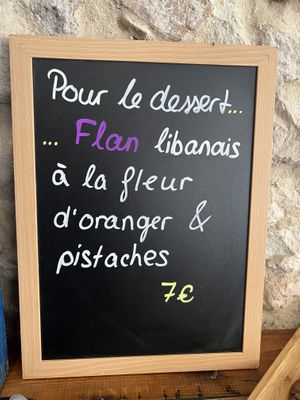 Pour le dessert...
... Flan libanais
à la fleur
d'oranger &
pistaches
7€